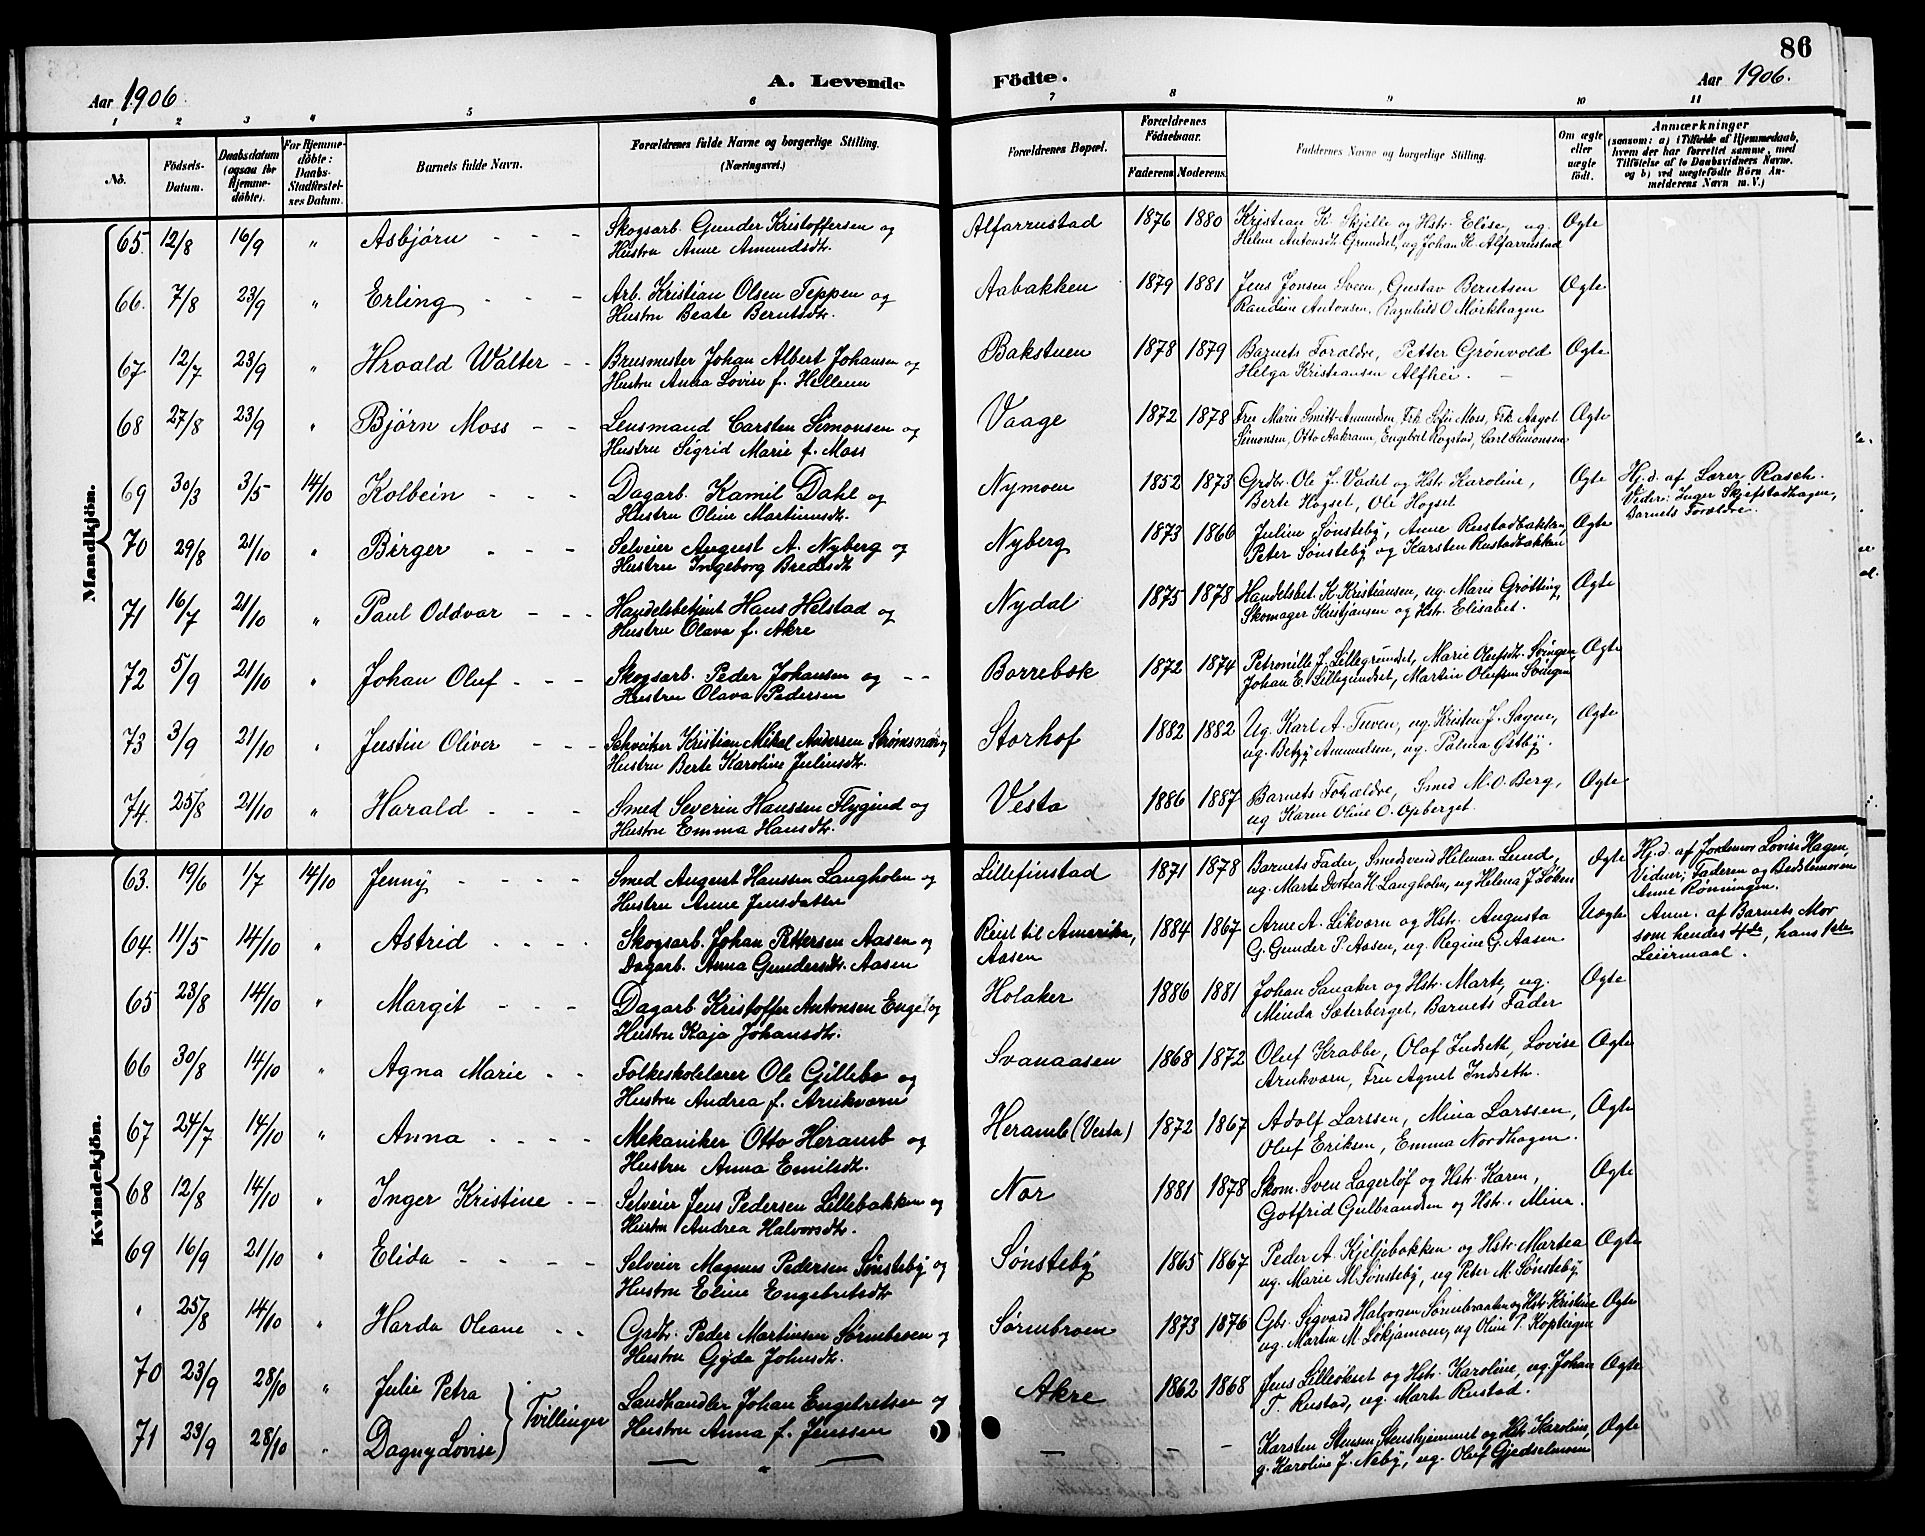 86
Aar 1906.
A. Levende Födte.
Aar 1906.
1 2 3 4 5 6 7 8 9 10 11
No.
Födsels-Datum.
Daabsdatum (ogsaa for Hjemmedöbte).
For Hjemmedöbte: Daabs-Stadfæstelses Datum.
Barnets fulde Navn.
Forældrenes fulde Navne og borgerlige Stilling. (Næringsvei.)
Forældrenes Bopæl.
Forældrenes Födselsaar.
Faderens. Moderens.
Faddernes Navne og borgerlige Stilling.
Om ægte eller uægte födt.
Anmærkninger
(saasom: a) i Tilfælde af Hjemmedaab, hvem der har forrettet samme, med Tilföielse af to Daabsvidners Navne. og b) ved uægtefödte Börn Anmelderens Navn m. V.)
Mandkjön.
65. 12/8 16/9 " Asbjørn - - - Skogsarb. Gunder Kristoffersen og Alfarrustad 1876 1880 Kristian K. Skjelle og Hstr. Elise, ug. Ægte
Hustru Anne Amundsdtr. Helene Antonsdtr. Grundset, ug Johan K. Alfarrustad
66. 7/8 23/9 " Erling - - - Arb. Kristian Olsen Teppen og Aabakken 1879 1881 Jens Jonsen Sveen, Gustav Berntsen Ægte
Hustru Beate Berntsdtr. Randine Antonsen, Ragnhild O Mørkhagen
67 12/7 23/9 " Hroald Walter - - Brusmester Johan Albert Johansen og Bakstuen 1878 1879 Barnets Forældre, Petter Grønvold Ægte
Hustru Anna Lovise f. Hellum Helga Kristiansen Alfhei. -
68 27/8 23/9 " Bjørn Moss - - Lensmand Carsten Simonsen og Vaage 1872 1878 Fru Marie Smitt-Amundsen, Frk Sofie Moss, Frk Aagot Ægte
Hustru Sigrid Marie f. Moss Simonsen, Otto Aakrann, Engebret Rogstad, Carl Simonsen
69 30/3 3/5 14/10 Kolbein - - - Dagarb. Kamil Dahl og Nymoen 1852 1873 Grdbr. Ole J. Vadet og Hstr. Karoline, Ægte Hj.d. af Lærer Rasch.
Hustru Oline Martinusdtr. Berte Hogset, Ole Hogset Vidner: Inger Skjefstadhagen,
Barnets Forældre.
70 29/8 21/10 " Birger - - - Selveier August A. Nyberg og Nyberg 1873 1866 Juline Sønsteby, Anne Rustadbakken, Ægte
Hustru Ingeborg Bredesdtr. Peter Sønsteby og Karsten Rustadbakken
71 16/7 21/10 " Paul Oddvar - - - Handelsbetjent Hans Helstad og Nydal 1875 1878 Handelsbet. K. Kristiansen, ug. Marie Grøtting, Ægte
Hustru Olava f. Akre Skomager Kristjansen og Hstr. Elisabet.
72 5/9 21/10 " Johan Oluf - - - Skogsarb. Peder Johansen og - - Borrebæk 1872 1874 Petronille J. Lillegrundset, Marie Olufsdtr. Svingen, Ægte
Hustru Olava Pedersen Johan E. Lillegundset, Martin Olufsen Svingen
73 3/9 21/10 " Justin Oliver - - - Schveitser Kristian Mikal Andersen Strømsnæs og Storhof 1882 1882 Ug. Karl A. Tuven, ug. Kristen J. Sagen, Ægte
Hustru Berte Karoline Juliusdtr. ug. Betzy Amundsen, ug. Palma Østby.
74. 25/8 21/10 " Harald - - - Smed Severin Hanssen Flygind og Vesta 1886 1887 Barnets Forældre, Smed M. O. Berg, Ægte
Hustru Emma Hansdtr. ug Karen Oline O. Opberget.
Kvindekjön.
63. 19/6 1/7 14/10 Jenny - - - - Smed August Hanssen Langholen og Lillefinstad 1871 1878 Barnets Fader, Smedsvend Hilmar Lund, Ægte Hj.d. af Jordemor Lovise Hagen,
Hustru Anne Jensdatter ug. Marte Dortea H. Langholm, ug Helena J. Løken Vidner; Faderen og Bedstemoren
Anne Rønningen.
64. 11/5 14/10 " Astrid - - - - Skogsarb. Johan Pettersen Aasen og Reist til Amerika, 1884 1867 Arne A. Likvern og Hstr. Augusta Uægte Anm. af Barnets Mor
Dagarb. Anna Gundersdtr. Aasen Aasen G. Gunder P. Aasen, ug. Regine G. Aasen som hendes 4de, hans 1ste
Leiermaal.
65 23/8 14/10 " Margit - - - Dagarb Kristoffer Antonsen Enge og Holaker 1886 1881 Johan Sanaker og Hstr. Marte, ug. Ægte
Hustru Kaja Johansdtr. Minda Sæterberget, Barnets Fader
66 30/8 14/10 " Agna Marie - - Folkeskolelærer Ole Gillebo og Svanaasen 1868 1872 Oluf Krabbe, Olaf Indseth, Lovise Ægte
Hustru Andrea f. Arnkværn Arnkværn, Fru Agnet Indseth.
67 24/7 14/10 " Anna - - - - Mekaniker Otto Heramb og Heramb (Vesta) 1872 1867 Adolf Larssen, Mina Larssen, Ægte
Hustru Anna Emilsdtr. Oluf Eriksen, Emma Nordhagen.
68 12/8 14/10 " Inger Kristine - - Selveier Jens Pedersen Lillebakken og Nor 1881 1878 Skom. Sven Lagerløf og Hstr. Karen, Ægte
Hustru Andrea Halvorsdtr. Gotfrid Gulbrandsen og Hstr. Mina.
69 16/9 21/10 " Elida - - - - Selveier Magnus Pedersen Sønsteby og Sønsteby 1865 1867 Peder A. Kjeljebakken og Hstr. Martea Ægte
Hustru Eline Engebretsdtr ug. Marie M. Sønsteby, ug Peter M. Sønsteby
" 25/8 14/10 " Harda Oleane - - Grdbr. Peder Martinsen Sørnbroen og Sørnbroen 1873 1876 Gbr. Sigvard Halvorsen Sørnbraaten og Hstr. Kristine Ægte
Hustru Gyda Johnsdtr. ug. Martin M. Løkjamoen, ug Oline P. Kopteigen
70 23/9 28/10 " Julie Petra } Tvillinger Landhandler Johan Engebretsen og Akre 1862 1868 Jens Lilleøkset og Hstr. Karoline, ug. Johan Ægte
Hustru Anna f. Jenssen T. Rustad, ug. Marte Rustad.
71 23/9 28/10 " Dagny Lovise — " — — - - Karsten Stensen Stenshjemmet og Hstr. Karoline, Ægte
g. Karoline J. Neby, ug. Oluf Gjedselmoen